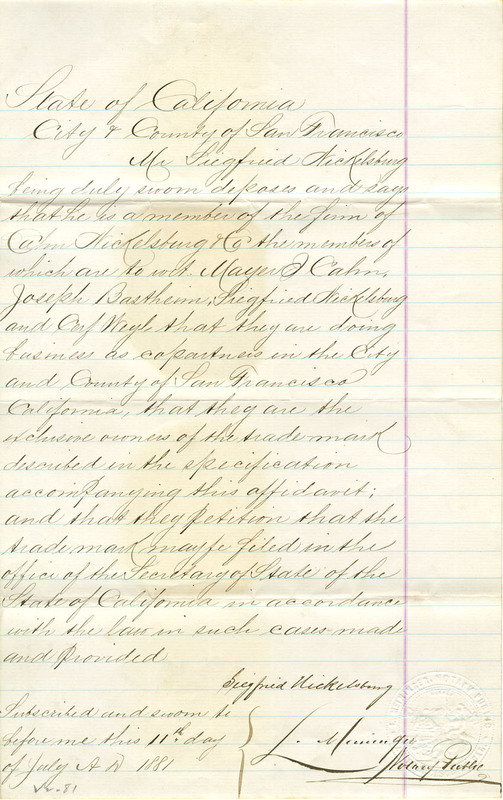 State of California
City & County of San Francisco
Mr Siegfried Nickelsburg
being duly sworn deposes and says
that he is a member of the firm of
Cahn Nickelsburg & Co the members of
which are to wit Mayer J Cahn,
Joseph Bastheim, Siegfried Nickelsburg
and Cerf Weyl that they are doing
business as copartners in the City
and County of San Francisco
California, that they are the
exclusive owners of the trade mark
described in the specification
accompanying this affidavit;
and that they petition that the
trade mark may be filed in the
office of the Secretary of State of the
State of California in accordance
with the law in such cases made
and provided
Siegfried Nickelsburg
Subscribed and sworn to
before me this 11th day
of July A D 1881
L. Meininger
Notary Public